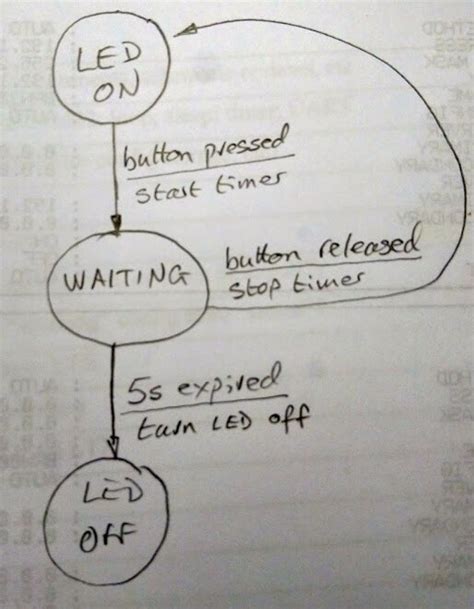 LED
ON
button pressed
start timer
WAITING
button released
stop timer
5s expired
turn LED off
LED
OFF